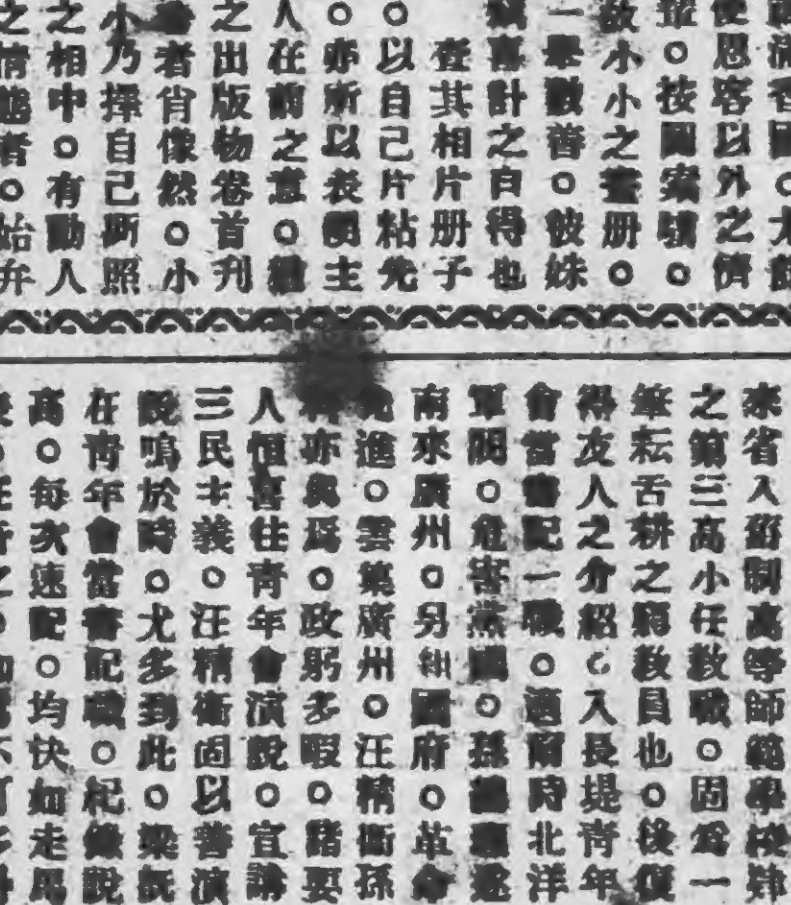 國滿香國。尤
使思容以外之儕
蹤。按圖索驥。
故小小之畫册。
一舉數善。彼姝
竊喜計之自得也
查其相片册子
。以自己片粘先
。亦所以表明主
人在前之意。
之出版物卷首刊
者肖像然。小
小乃擇自己所照
之相中。有動人
之情態者。始弁
來省入舊制高等師範學校肄
之第三高小任教職。固爲一
筆耘舌耕之窮教員也。後復
得友人之介紹。入長堤青年
會當書記一職。適爾時北洋
軍閥。危害黨國。孫總理遂
南來廣州。另組國府。革命
進。雲集廣州。汪精衛孫
亦與焉。政躬多暇。諸要
人恒喜往青年會演說。宣講
三民主義。汪精衛固以善演
說鳴於時。尤多到此。梁
在青年會當書記職。紀錄說
高。每次速記。均快如走馬